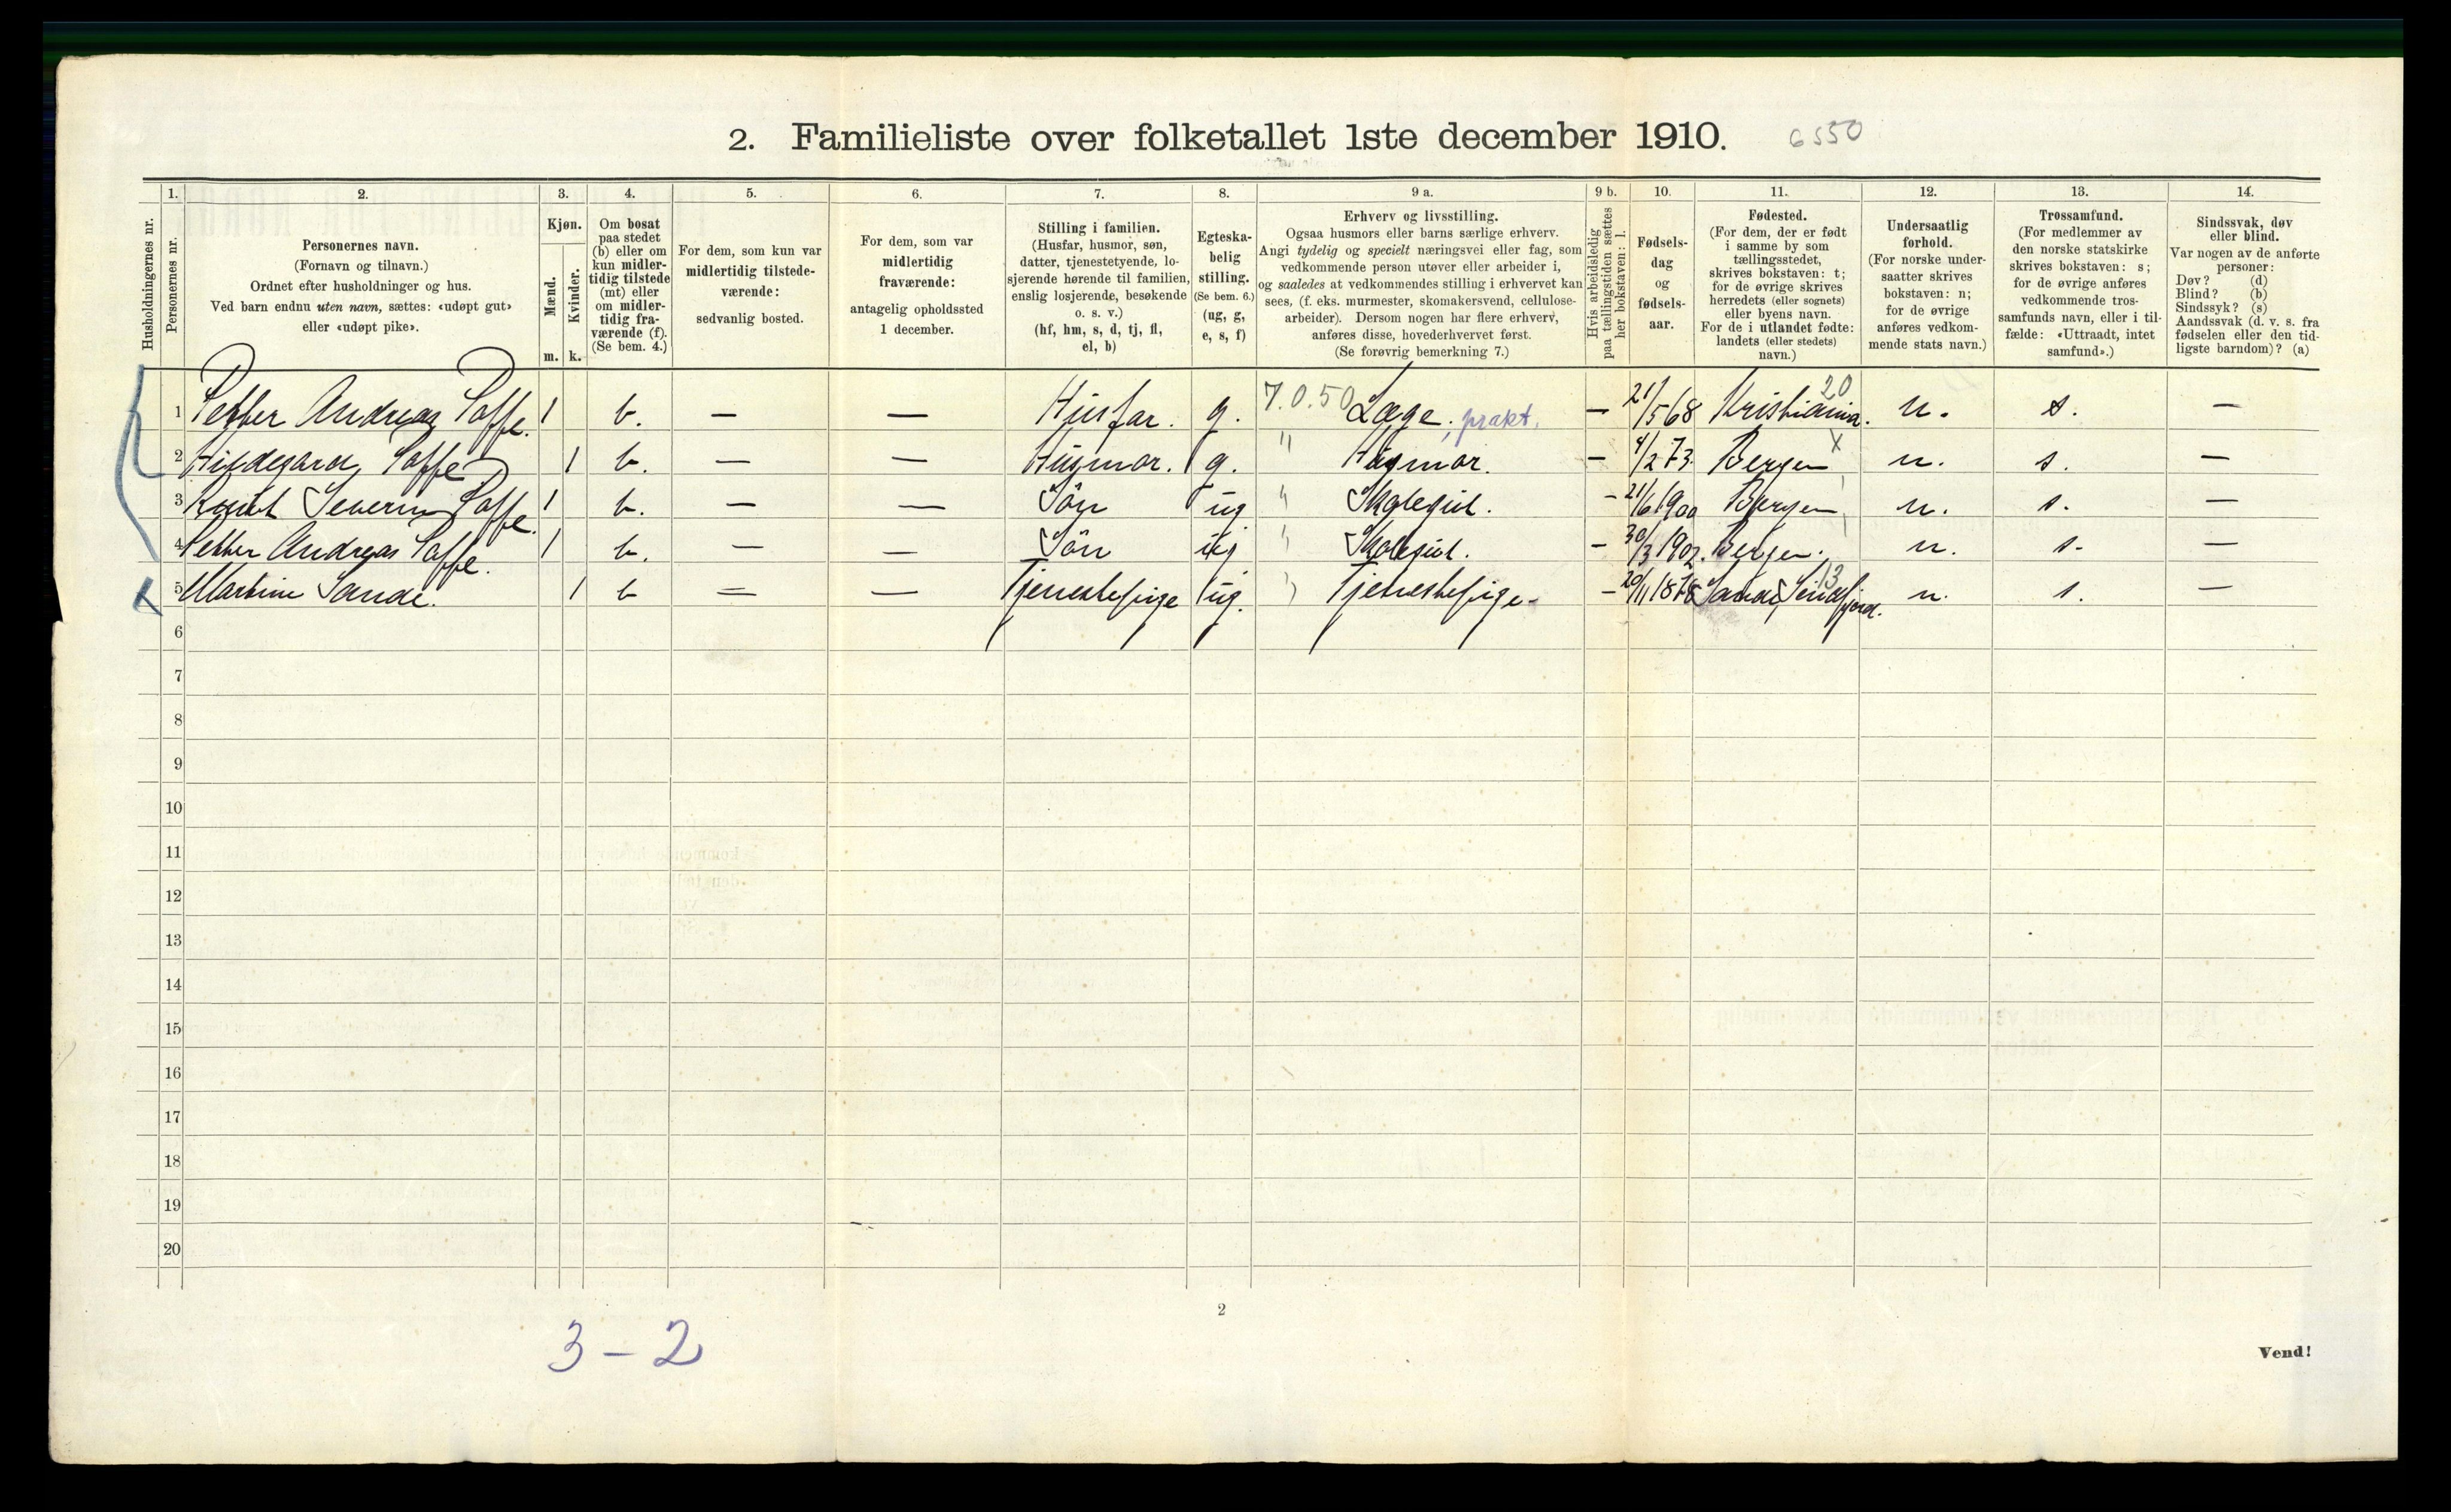 2. Familieliste over folketallet 1ste december 1910. 6550
Husholdningernes nr.
1.
Personernes nr.
2.
Personernes navn.
(Fornavn og tilnavn.)
Ordnet efter husholdninger og hus.
Ved barn endnu uten navn, sættes: «udøpt gut»
eller «udøpt pike».
3.
Kjøn.
Mænd.
Kvinder.
m. k.
4.
Om bosat
paa stedet
(b) eller om
kun midler-
tidig tilstede
(mt) eller
om midler-
tidig fra-
værende (f).
(Se bem. 4.)
5.
For dem, som kun var
midlertidig tilstede-
værende:
sedvanlig bosted.
6.
For dem, som var
midlertidig
fraværende:
antagelig opholdssted
1 december.
7.
Stilling i familien.
(Husfar, husmor, søn,
datter, tjenestetyende, lo-
sjerende hørende til familien,
enslig losjerende, besøkende
o. s. v.)
(hf, hm, s, d, tj, fl,
el, b)
8.
Egteska-
belig
stilling.
(Se bem. 6.)
(ug, g,
e, s, f)
9 a.
Erhverv og livsstilling.
Ogsaa husmors eller barns særlige erhverv.
Angi tydelig og specielt næringsvei eller fag, som
vedkommende person utøver eller arbeider i,
og saaledes at vedkommendes stilling i erhvervet kan
sees, (f. eks. murmester, skomakersvend, cellulose-
arbeider). Dersom nogen har flere erhverv,
anføres disse, hovederhvervet først.
(Se forøvrig bemerkning 7.)
9 b.
Hvis arbeidsledig
paa tællingstiden sættes
her bokstaven: l.
10.
Fødsels-
dag
og
fødsels-
aar.
11.
Fødested.
(For dem, der er født
i samme by som
tællingsstedet,
skrives bokstaven: t;
for de øvrige skrives
herredets (eller sognets)
eller byens navn.
For de i utlandet fødte:
landets (eller stedets)
navn.)
12.
Undersaatlig
forhold.
(For norske under-
saatter skrives
bokstaven: n;
for de øvrige
anføres vedkom-
mende stats navn.)
13.
Trossamfund.
(For medlemmer av
den norske statskirke
skrives bokstaven: s;
for de øvrige anføres
vedkommende tros-
samfunds navn, eller i til-
fælde: «Uttraadt, intet
samfund».)
14.
Sindssvak, døv
eller blind.
Var nogen av de anførte
personer:
Døv? (d)
Blind? (b)
Sindssyk? (s)
Aandssvak (d. v. s. fra
fødselen eller den tid-
ligste barndom)? (a)
1 Petter Andreas Poffe. 1 b. — — Husfar. g. 7.0.50 Læge, prakt. — 21/5 68 Kristiania. 20 n. s. —
2 Hildegard Poffe 1 b. — — Husmor. g. " Husmor. — 4/2 73. Bergen x n. s. —
3 Knut Severin Poffe. 1 b. — — Sön ug " Skolegut. — 21/6 1900 Bergen n. s. —
4 Petter Andreas Poffe. 1 b. — — Sön ug " Skolegut. — 30/3 1902. Bergen. n. s. —
x 5 Martine Sande. 1 b — — Tjenestepige ug. " Tjenestepige — 20/11 1878 Sande Söndfjord. 13 n. s. —
6
7
8
9
10
11
12
13
14
15
16
17
18
19
20
2
3 – 2
Vend!